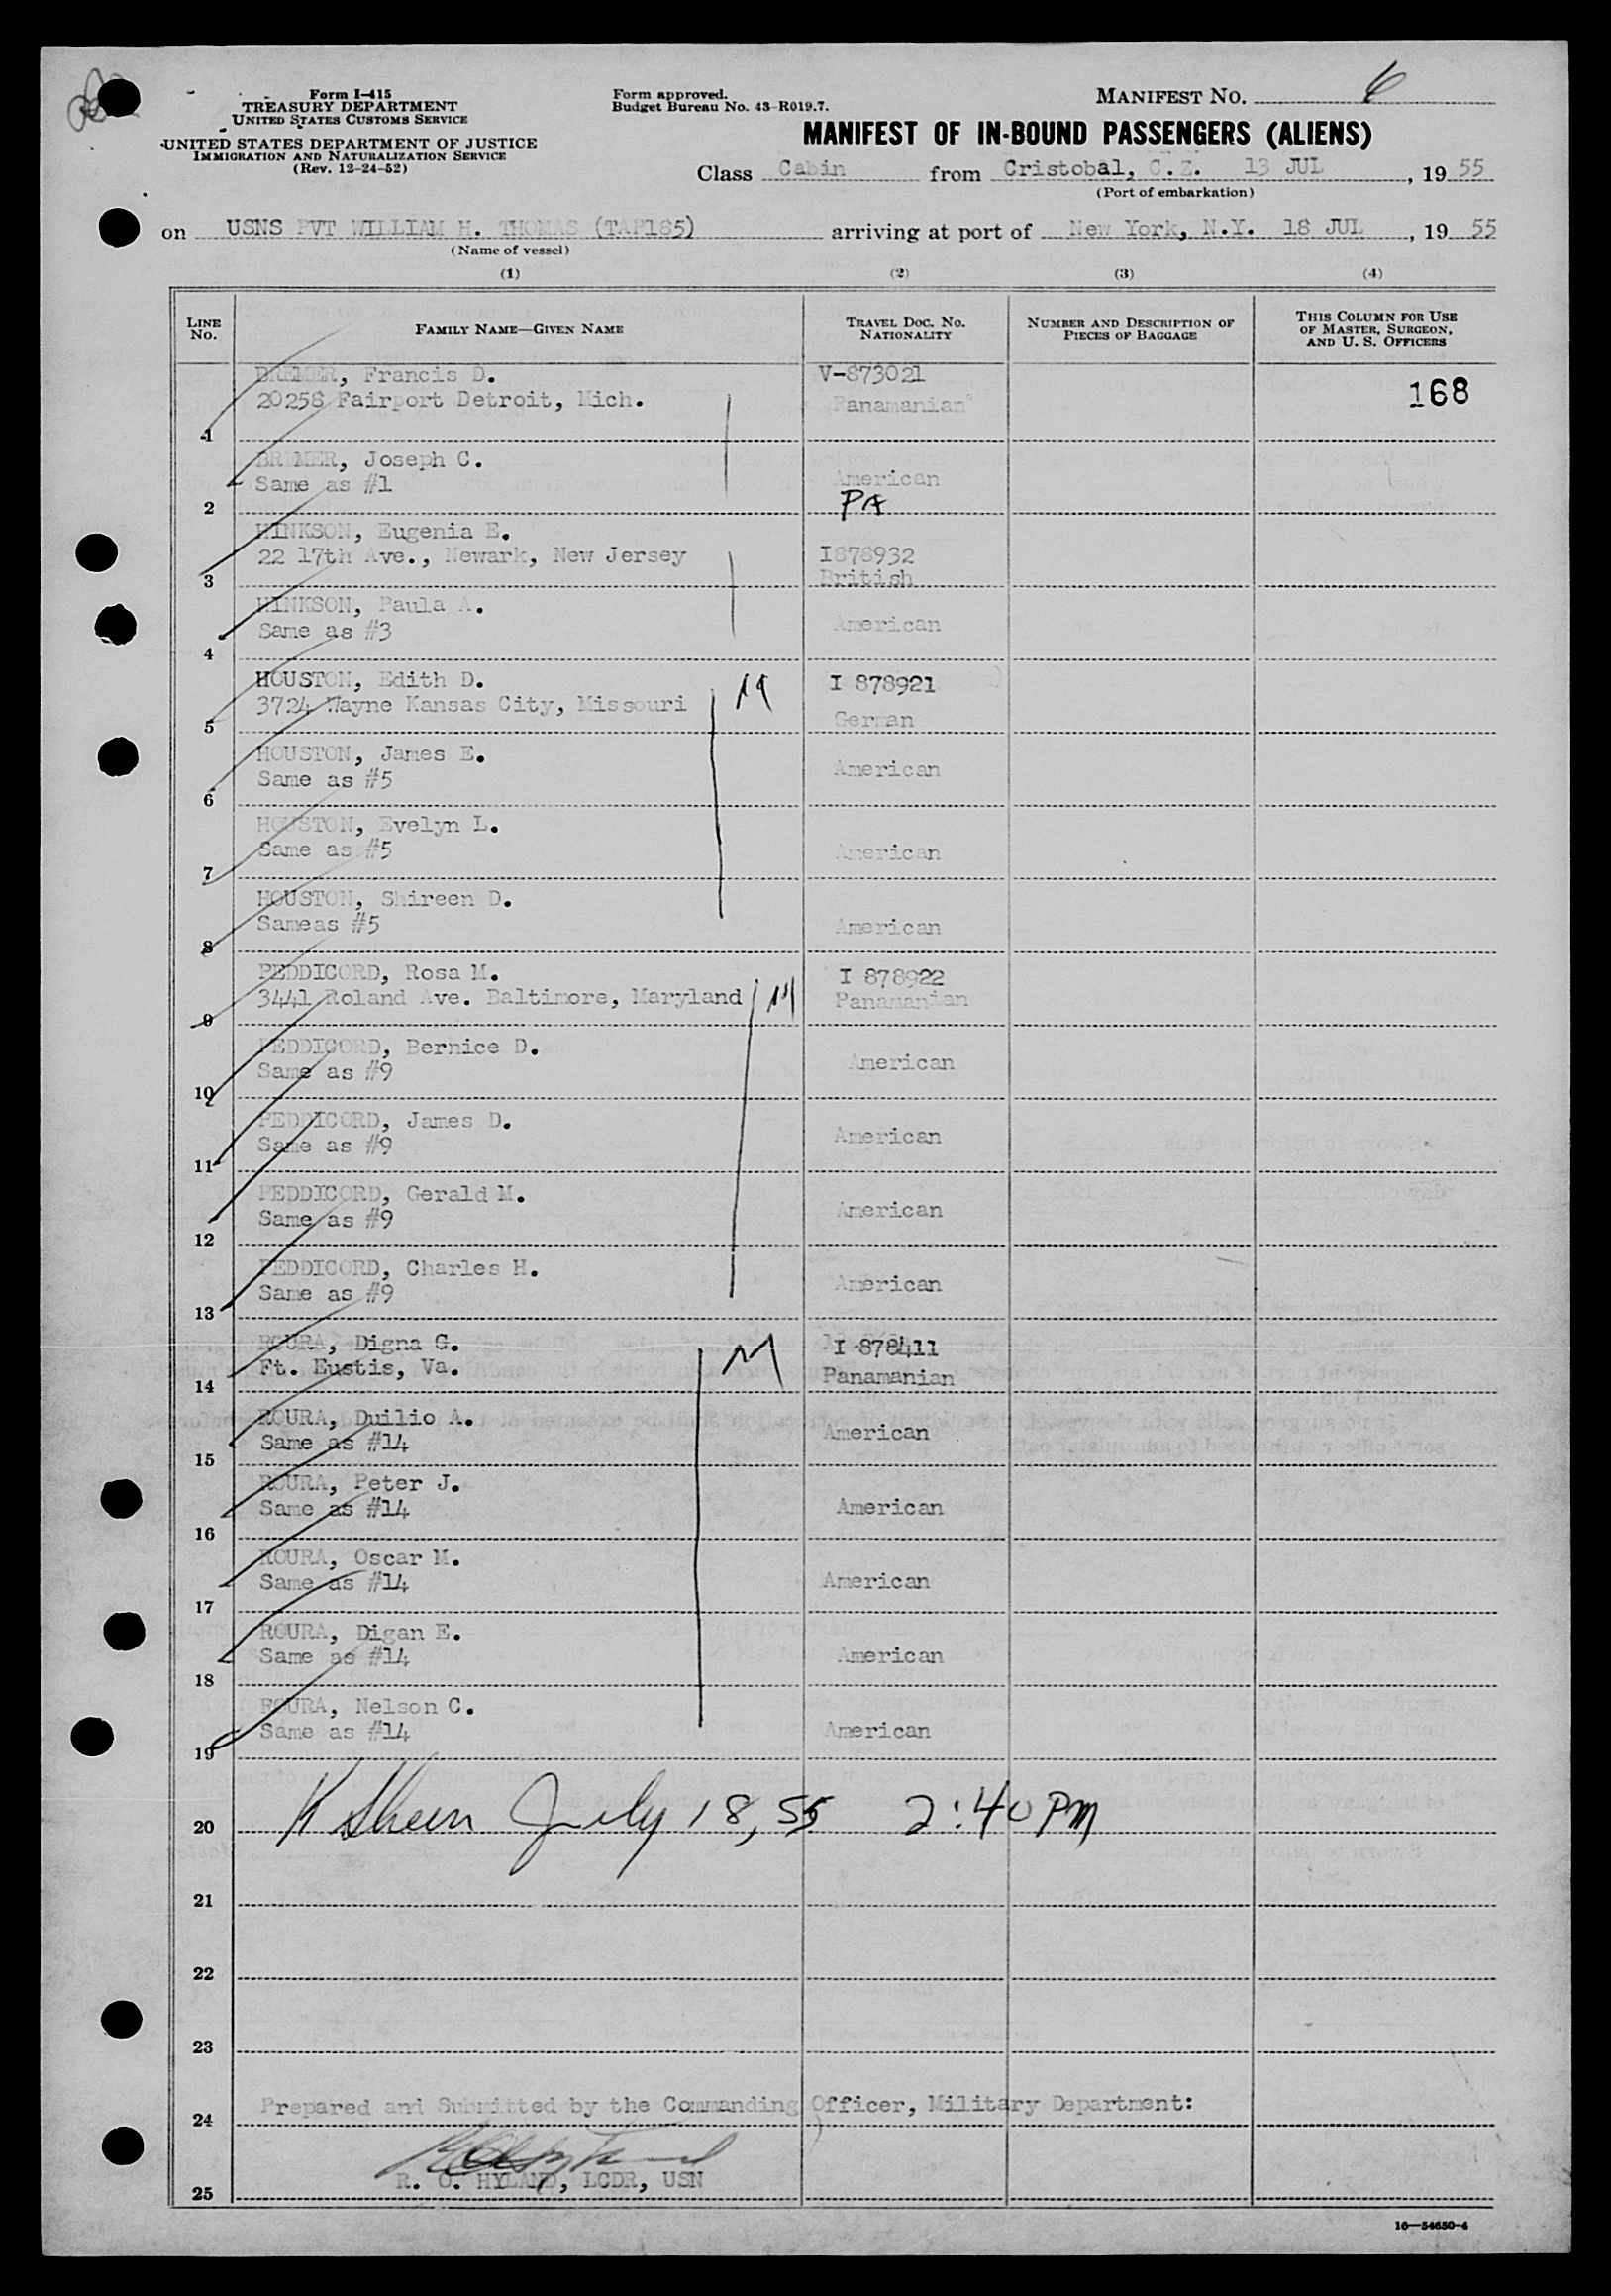 Form I-415
TREASURY DEPARTMENT
UNITED STATES CUSTOMS SERVICE
UNITED STATES DEPARTMENT OF JUSTICE
IMMIGRATION AND NATURALIZATION SERVICE
(Rev. 12-24-52)
Form approved.
Budget Bureau No. 43-R019.7.
MANIFEST NO. 6
MANIFEST OF IN-BOUND PASSENGERS (ALIENS)
Class Cabin from Cristobal, C.Z. 13 JUL, 19 55
(Port of embarkation)
on USNS PVT WILLIAM H. THOMAS (TAP185) arriving at port of New York, N.Y. 18 JUL, 19 55
(Name of vessel)
(1) (2) (3) (4)
LINE NO. FAMILY NAME—GIVEN NAME TRAVEL DOC. NO. NATIONALITY NUMBER AND DESCRIPTION OF PIECES OF BAGGAGE THIS COLUMN FOR USE OF MASTER, SURGEON, AND U. S. OFFICERS
BREMER, Francis D. V-873021
20258 Fairport Detroit, Mich. Panamanian 168
1
BREMER, Joseph C.
Same as #1 American
2 PA
HINKSON, Eugenia E.
22 17th Ave., Newark, New Jersey I878932
3 British
HINKSON, Paula A.
Same as #3 American
4
HOUSTON, Edith D. I 878921
3724 Wayne Kansas City, Missouri M German
5
HOUSTON, James E.
Same as #5 American
6
HOUSTON, Evelyn L.
Same as #5 American
7
HOUSTON, Shireen D.
Sameas #5 American
8
PEDDICORD, Rosa M. I 878922
3441 Roland Ave. Baltimore, Maryland M Panamanian
9
PEDDICORD, Bernice D.
Same as #9 American
10
PEDDICORD, James D.
Same as #9 American
11
PEDDICORD, Gerald M.
Same as #9 American
12
PEDDICORD, Charles H.
Same as #9 American
13
ROURA, Digna G. I 878411
Ft. Eustis, Va. M Panamanian
14
ROURA, Duilio A.
Same as #14 American
15
ROURA, Peter J.
Same as #14 American
16
ROURA, Oscar M.
Same as #14 American
17
ROURA, Digan E.
Same as #14 American
18
ROURA, Nelson C.
Same as #14 American
19
20 July 18, 55 2:40 PM
21
22
23
Prepared and Submitted by the Commanding Officer, Military Department:
24
R. O. HYLAND, LCDR, USN
25
16—54650-4